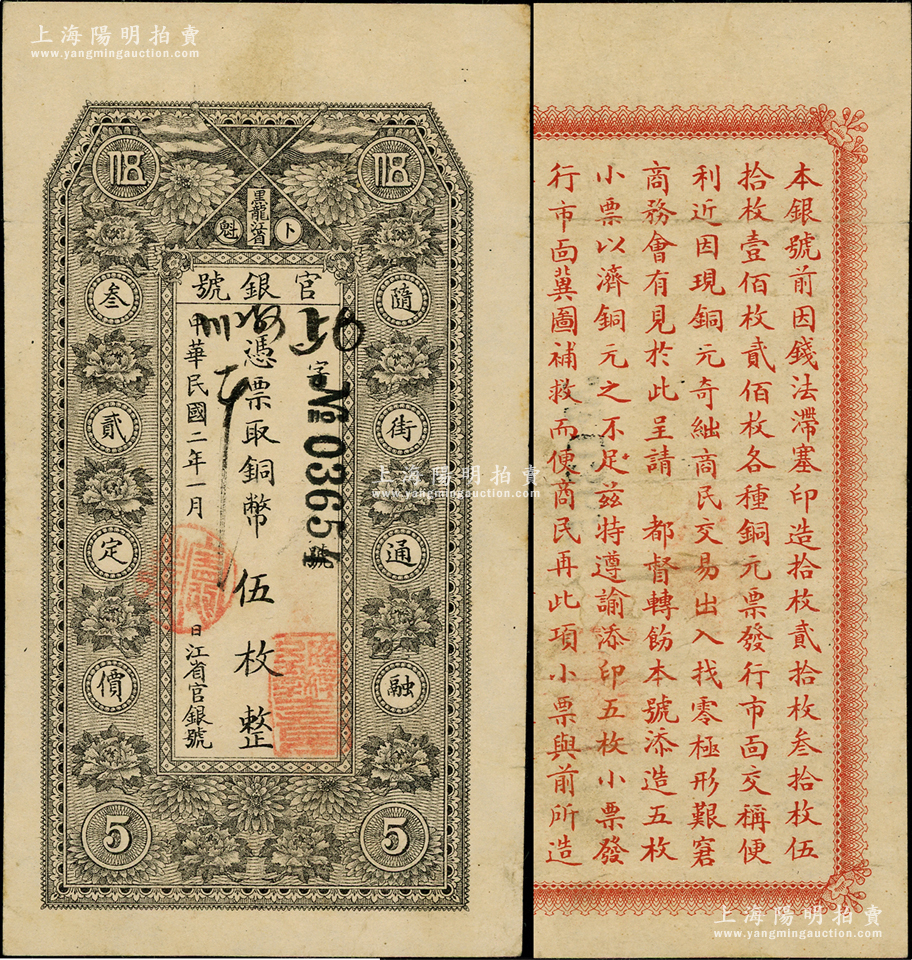 上海陽明拍賣
www.yangmingauction.com
伍 伍
黑龍省
卜魁
官銀號
隨街通融
字
№ 03651
號
憑票取銅幣伍枚整
中華民國二年一月 日江省官銀號
叁貳定價
5 5
本銀號前因錢法滯塞印造拾枚貳拾枚叁拾枚伍
拾枚壹佰枚貳佰枚各種銅元票發行市面交稱便
利近因現銅元奇絀商民交易出入找零極形艱窘
商務會有見於此呈請 都督轉飭本號添造五枚
小票以濟銅元之不足茲特遵諭添印五枚小票發
行市面冀圖補救而便商民再此項小票與前所造
上海陽明拍賣
www.yangmingauction.com
上海陽明拍賣
www.yangmingauction.com